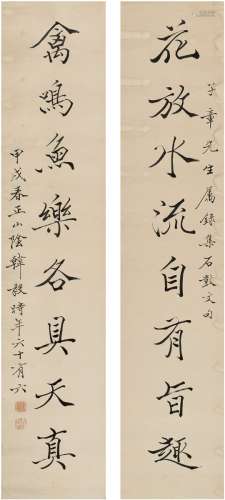 花放水流自有旨趣
芊章先生属録集石鼓文句
禽鳴魚樂各具天真
甲戌春正山陰韓毅時年六十有六